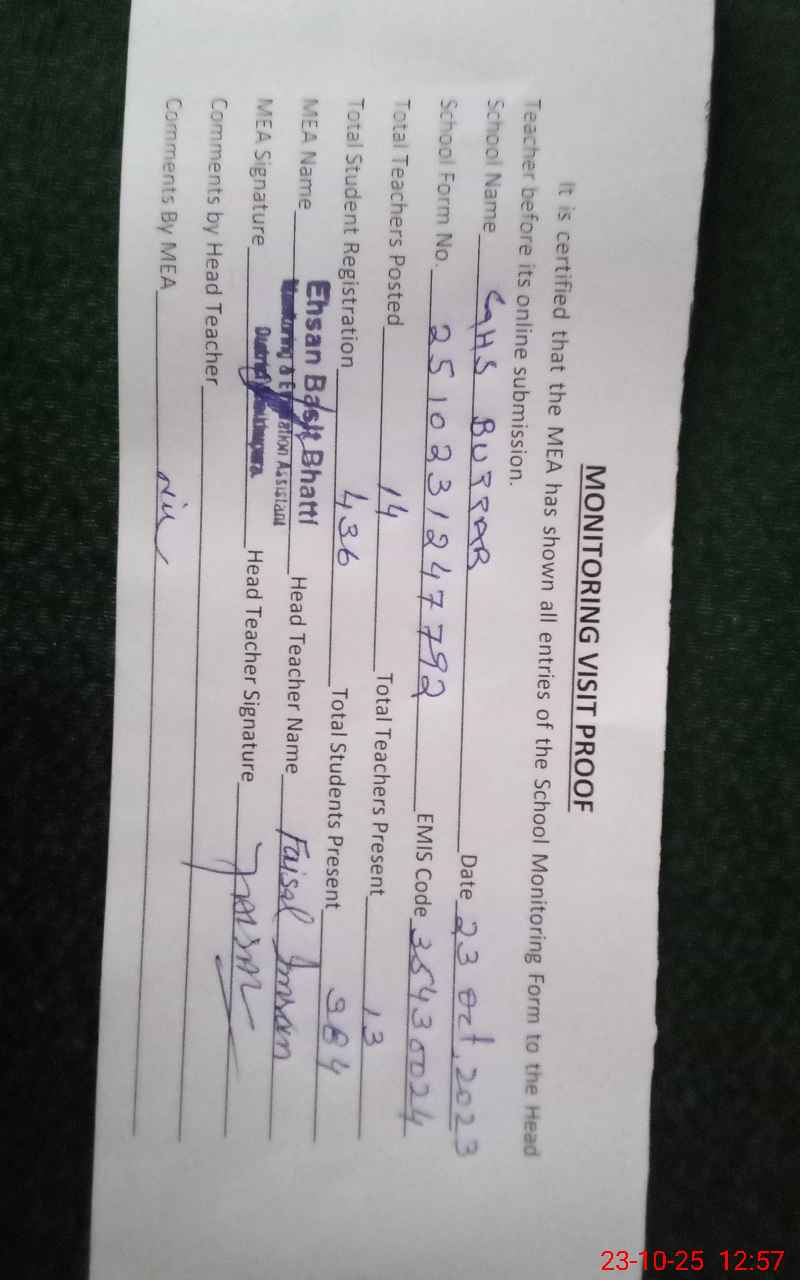 MONITORING VISIT PROOF
It is certified that the MEA has shown all entries of the School Monitoring Form to the Head
Teacher before its online submission.
School Name GHS BURRAR Date 23 Oct, 2023
School Form No. 2510231247792 EMIS Code 35430024
Total Teachers Posted 14 Total Teachers Present 13
Total Student Registration 436 Total Students Present 364
MEA Name Ehsan Basit Bhatti Head Teacher Name Faisal Imran
Monitoring & Evaluation Assistant
MEA Signature District Sheikhupura Head Teacher Signature
Comments by Head Teacher
Comments By MEA Nil
23-10-25 12:57